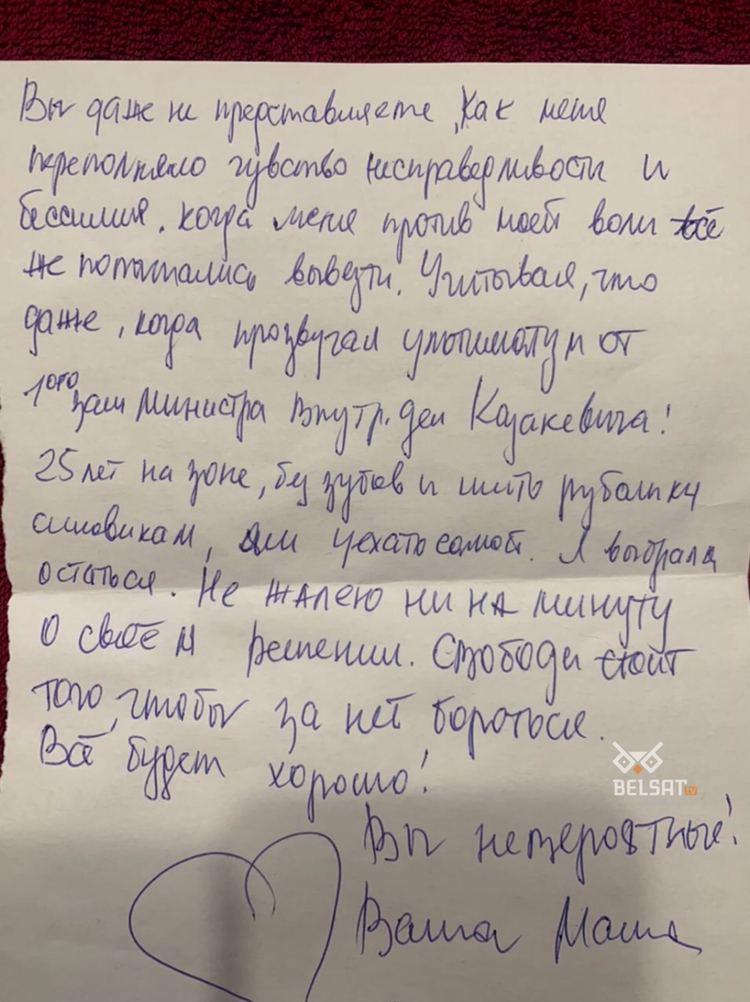 Вы даже не представляете, как меня
переполняло чувство несправедливости и
бессилия, когда меня против моей воли всё
же попытались вывезти. Учитывая, что
даже, когда прозвучал ультиматум от
1ого зам министра внутр. дел Казакевича!
25 лет на зоне, без зубов и шить рубашки
силовикам, или уехать самой. Я выбрала
остаться. Не жалею ни на минуту
о своём решении. Свобода стоит
того, чтобы за неё бороться.
Всё будет хорошо!
BELSAT TV
Вы невероятные!
Ваша Маша